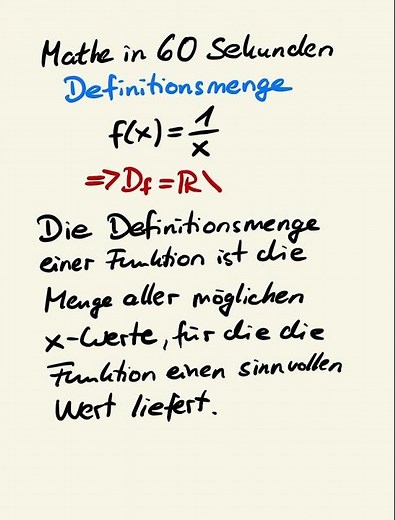 Mathe in 60 Sekunden
Definitionsmenge
f(x) = 1/x
=> Df = ℝ\
Die Definitionsmenge
einer Funktion ist die
Menge aller möglichen
x-Werte, für die die
Funktion einen sinnvollen
Wert liefert.